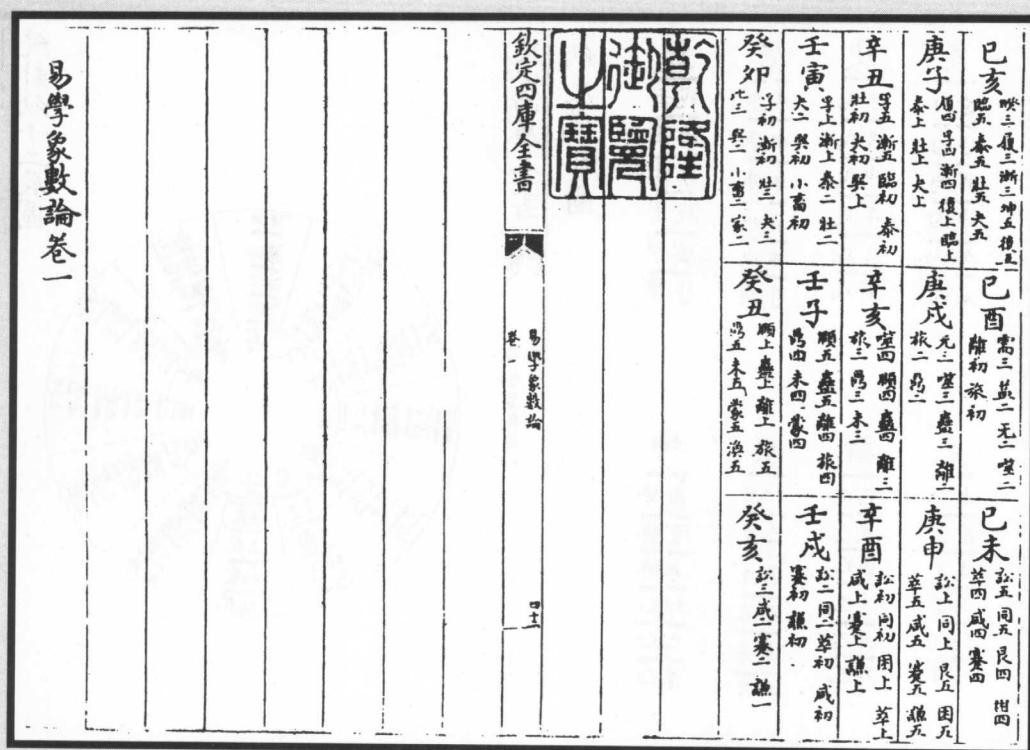 己亥
睽三 復三 漸三 坤五 復五
臨五 泰五 壯五 夬五
己酉
需三 益二 无二 噬二
離初 旅初
己未
訟五 同五 艮四 困四
萃四 咸四 蹇四
庚子
頤四 孚四 漸四 復上 臨上
泰上 壯上 夬上
庚戌
无三 噬三 蠱三 離二
旅二 鼎二
庚申
訟上 同上 艮五 困五
萃五 咸五 蹇五 謙五
辛丑
孚五 漸五 臨初 泰初
壯初 夬初 巽上
辛亥
噬四 頤四 蠱四 離三
旅三 鼎三 未三
辛酉
訟初 同初 困上 萃上
咸上 蹇上 謙上
壬寅
孚上 漸上 泰二 壯二
夬二 巽初 小畜初
壬子
頤五 蠱五 離四 旅四
鼎四 未四 蒙四
壬戌
訟二 同二 萃初 咸初
蹇初 謙初
癸卯
孚初 漸初 壯三 夬三
巽二 小畜二 家二
癸丑
頤上 蠱上 離上 旅五
鼎五 未五 蒙五 渙五
癸亥
訟三 咸二 蹇二 謙二
乾隆
御覽
之寶
欽定四庫全書
易學象數論
卷一
易學象數論卷一